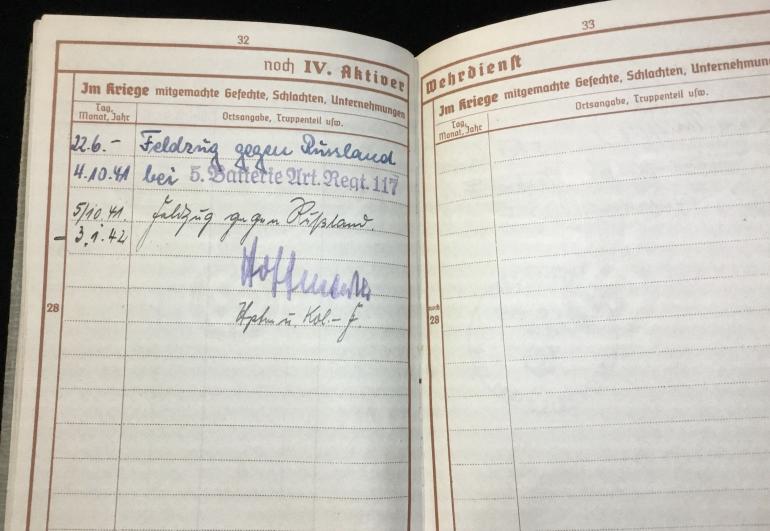 32
noch IV. Aktiver
Im Kriege mitgemachte Gefechte, Schlachten, Unternehmungen
Tag,
Monat, Jahr
Ortsangabe, Truppenteil usw.
22.6.- Feldzug gegen Russland
4.10.41 bei 5. Batterie Art. Regt. 117
5/10.41. Feldzug gegen Rußland.
- 3.1.42
Hptm u. Kol.-F.
28
33
Wehrdienst
Im Kriege mitgemachte Gefechte, Schlachten, Unternehmun
Tag,
Monat, Jahr
Ortsangabe, Truppenteil usw.
noch
28